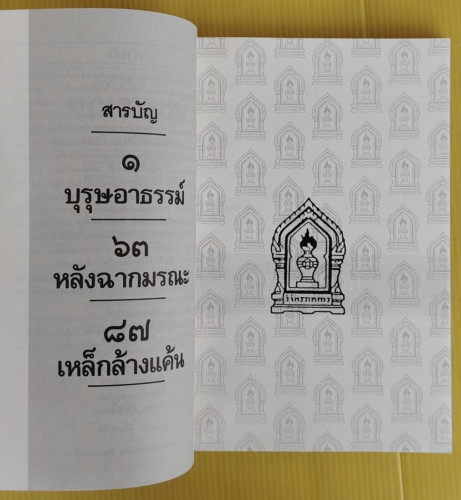 สารบัญ
๑
บุรุษอาธรรม์
๖๓
หลังฉากมรณะ
๘๗
เหล็กล้างแค้น